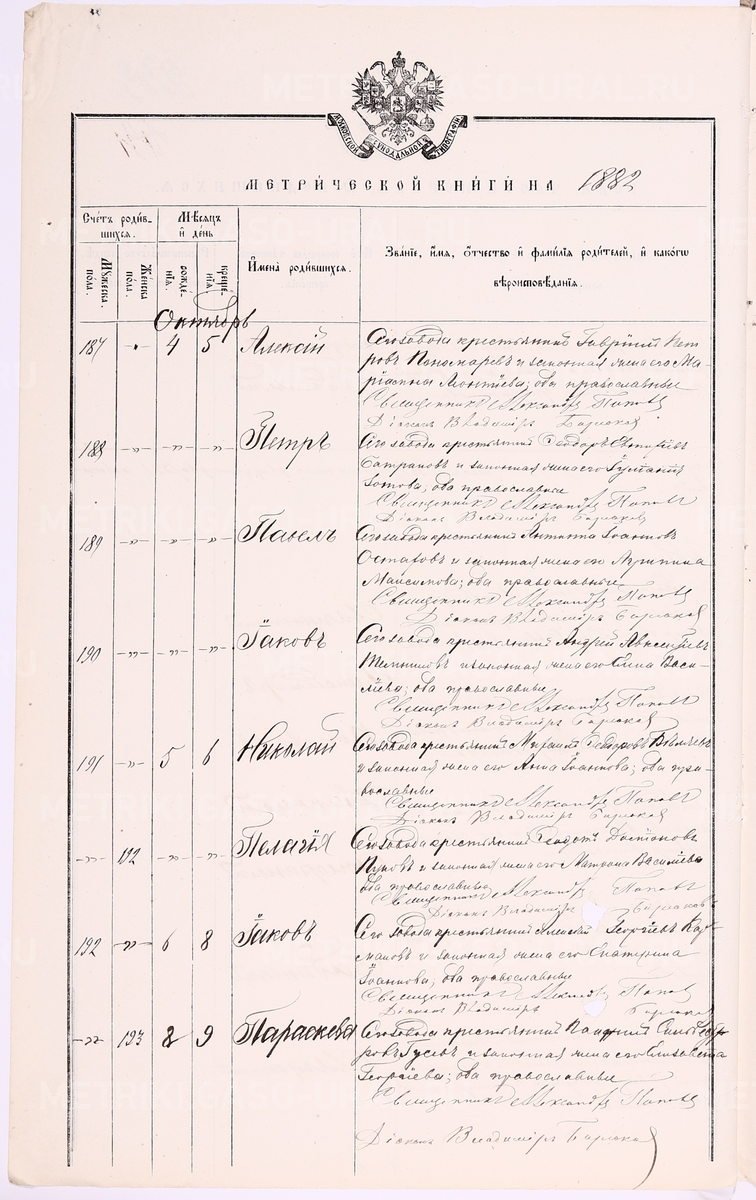 ДУХОВНОЙ СУНОДАЛЬНОЙ ТИПОГРАФІИ
МЕТРИ́ЧЕСКОЙ КНИ́ГИ НА 1882
Сче́тъ роди́вшихся.
Мѣ́сяцъ и҆ де́нь
Мꙋ́жеска по́ла.
Же́нска по́ла.
рожде́нїѧ.
креще́нїѧ
И҆мена̀ роди́вшихся.
Зва́нїе, и҆́мѧ, ѻ҆́тчество и҆ фами́лїѧ роди́телей, и҆ како́гѡ
вѣроисповѣ́данїѧ.
Октябрь
187 4 5 Алексій Сего завода крестьянинъ Гавріилъ Пет
ровъ Пономаревъ и законная жена его Ма
ріанна Леонтіева; оба православные
Священникъ Александръ Поповъ
Діаконъ Владиміръ
188 -„- -„- -„- Петръ Сего завода крестьянинъ Ѳеодоръ
и законная жена его
Зотова, оба православные
Священникъ Александръ Поповъ
Діаконъ Владиміръ
189 -„- -„- -„- Павелъ Сего завода крестьянинъ Іоанновъ
и законная жена его Агрипина
Максимова; оба православные
Священникъ Александръ Поповъ
Діаконъ Владиміръ
190 -„- -„- -„- Іаковъ Сего завода крестьянинъ Андрей
и законная жена его Елена Васи-
ліева; оба православные
Священникъ Александръ Поповъ
Діаконъ Владиміръ
191 -„- 5 6 Николай Сего завода крестьянинъ Михаилъ Ѳеодоровъ
и законная жена его Анна Іоаннова; оба пра-
вославные
Священникъ Александръ Поповъ
Діаконъ Владиміръ
-„- 192 -„- -„- Пелагія Сего завода крестьянинъ
и законная жена его Матрона Василіева
оба православные
Священникъ Александръ Поповъ
Діаконъ Владиміръ
192 -„- 6 8 Іаковъ Сего завода крестьянинъ Алексій Георгіевъ
и законная жена его Екатерина
Іоаннова, оба православные
Священникъ Александръ Поповъ
Діаконъ Владиміръ
-„- 193 8 9 Параскева Сего завода крестьянинъ
ровъ Гусевъ и законная жена его Елизавета
Георгіева; оба православные
Священникъ Александръ Поповъ
Діаконъ Владиміръ